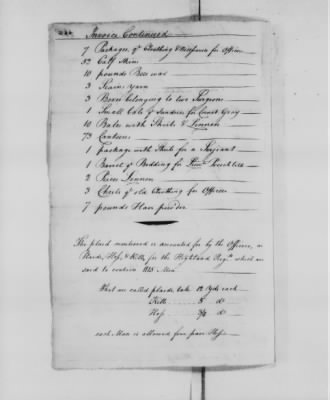 Invoice Continued
7 Packages of Clothing & for Officers
52 Calf Skins
10 pounds Bees wax
3 yarn
3 Boxes belonging to two Surgeons
1 Small Bale of Sundries for Gray
10 Bales with Shirts & Linnen
73 Canteens
1 package with Shirts for a Serjeant
1 Barrel of Bedding for
2 Pieces Linnen
3 Chests of old Cloathing for Officers
7 pounds Hair powder
The plaid mentioned is accounted for by the Officers, in
Hose, & Kilts, for the Highland Regts. which are
said to contain Men
What are called plaids, take 12 Yds each
Kilts 5 do
Hose 3/4 do
each Man is allowed four pair Hose